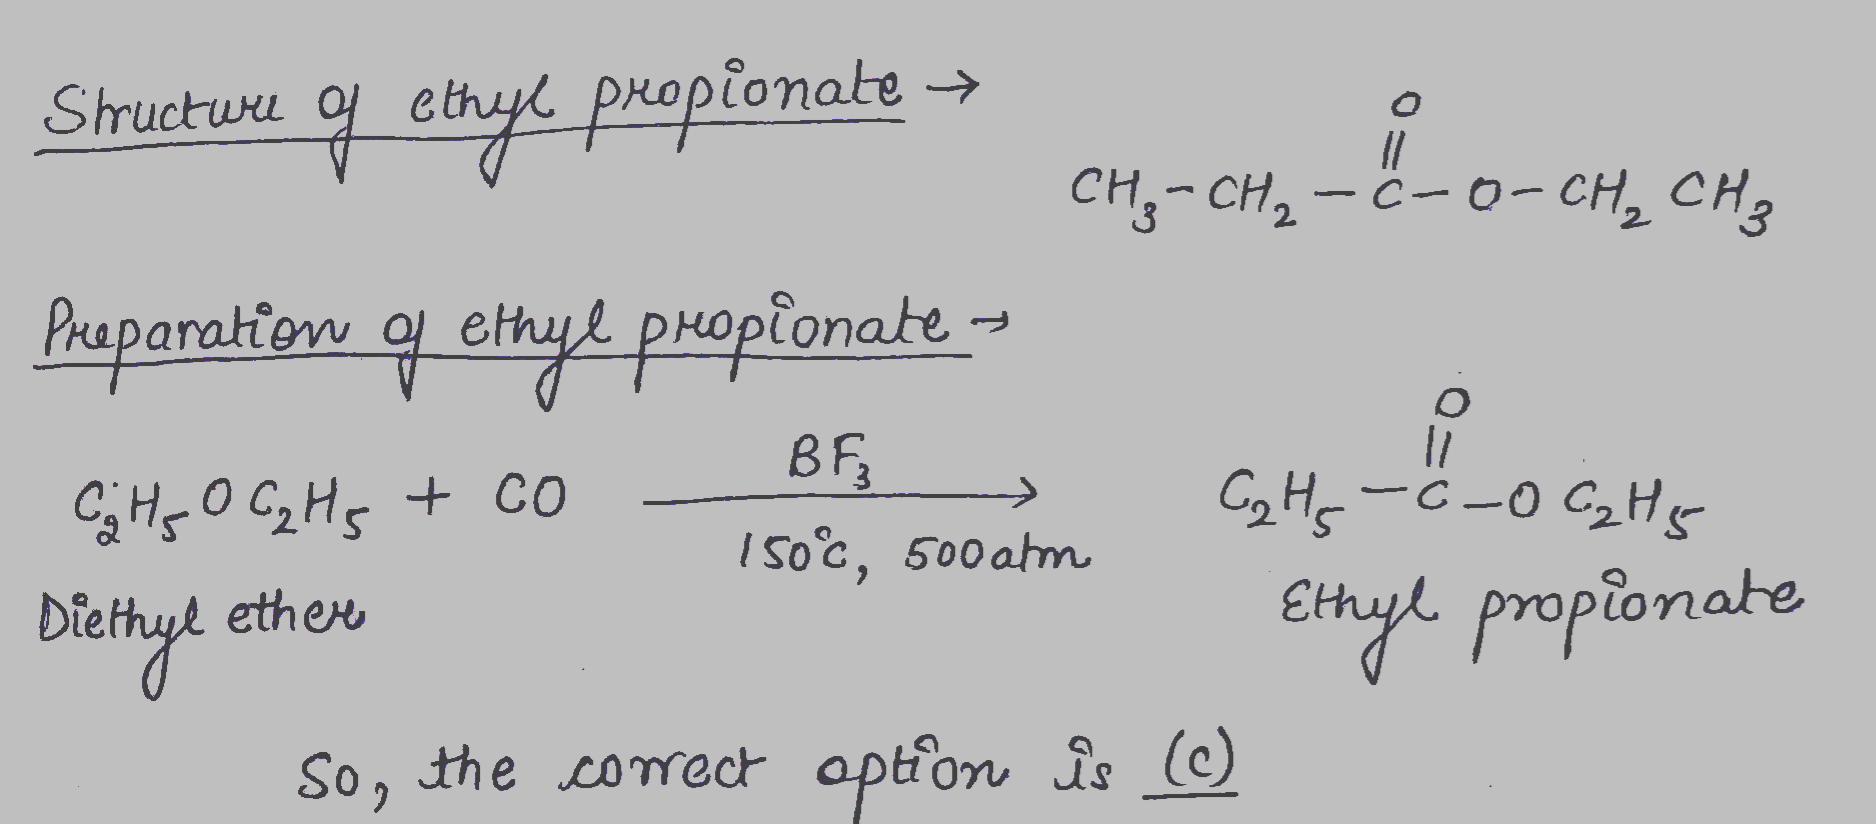 Structure of ethyl propionate →
O
||
CH₃-CH₂-C-O-CH₂ CH₃
Preparation of ethyl propionate →
O
||
C₂H₅OC₂H₅ + CO BF₃ → C₂H₅-C-OC₂H₅
150°C, 500atm
Diethyl ether Ethyl propionate
So, the correct option is (c)